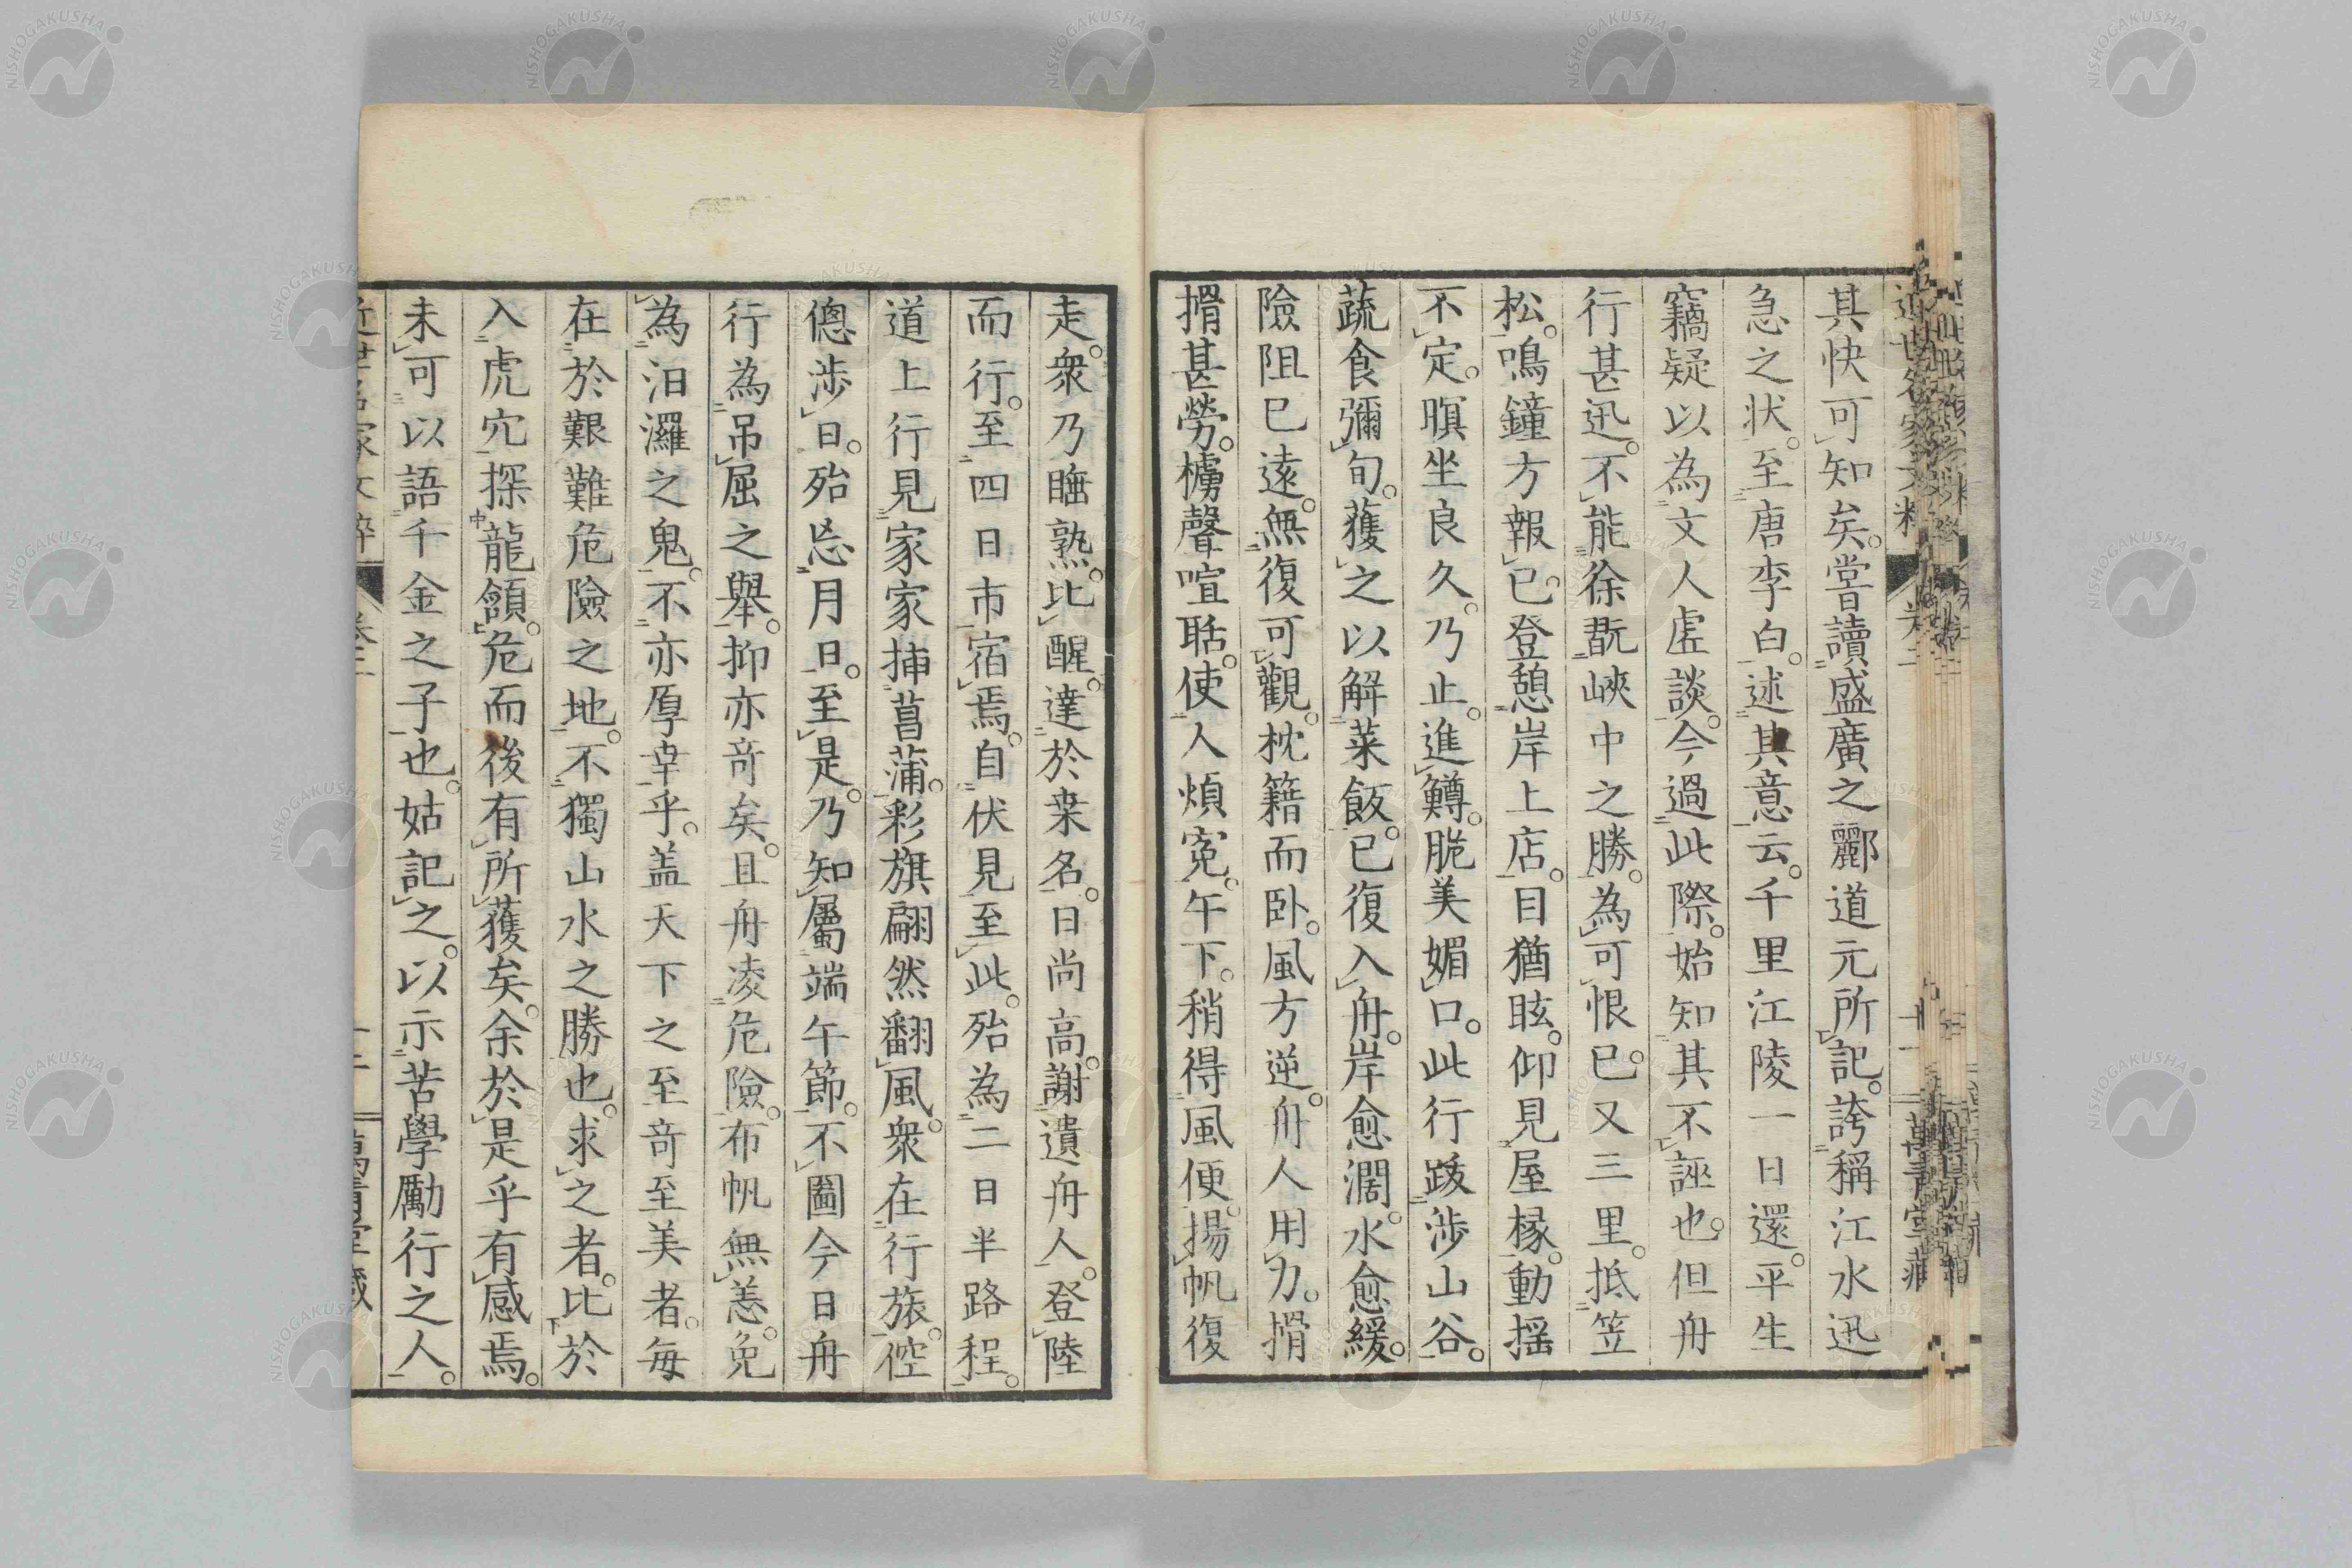 其快可知矣。嘗讀盛廣之酈道元所記。誇稱江水迅
急之状。至唐李白。述其意云。千里江陵一日還。平生
竊疑以為文人虛談。今過此際。始知其不誣也。但舟
行甚迅。不能徐翫峽中之勝。為可恨已。又三里。抵笠
松。鳴鐘方報已。登憩岸上店。目猶眩。仰見屋椽。動揺
不定。瞑坐良久。乃止。進鱒。脆美媚口。此行跋渉山谷。
蔬食彌旬。獲之以解菜飯。已復入舟。岸愈濶。水愈緩。
險阻已遠。無復可觀。枕籍而卧。風方逆。舟人用力。搰
搰甚勞。櫓聲喧聒。使人煩寃。午下。稍得風便。揚帆復
走。衆乃睡熟。比醒。達於桒名。日尚高。謝遺舟人。登陸
而行。至四日市宿焉。自伏見至此。殆為二日半路程。
道上行見家家揷菖蒲。彩旗翩然翻風。衆在行旅。倥
傯渉日。殆忘月日。至是。乃知屬端午節。不圖今日舟
行為吊屈之舉。抑亦竒矣。且舟凌危險。布帆無恙。免
為汨灑之鬼。不亦厚幸乎。盖天下之至竒至美者。毎
在於艱難危險之地。不獨山水之勝也。求之者。比於
入虎穴探龍頷。危而後有所獲矣。余於是乎有感焉。
未可以語千金之子也。姑記之。以示苦學勵行之人。
近世名家文粹
卷二
萬青堂藏
NISHOGAKUSHA